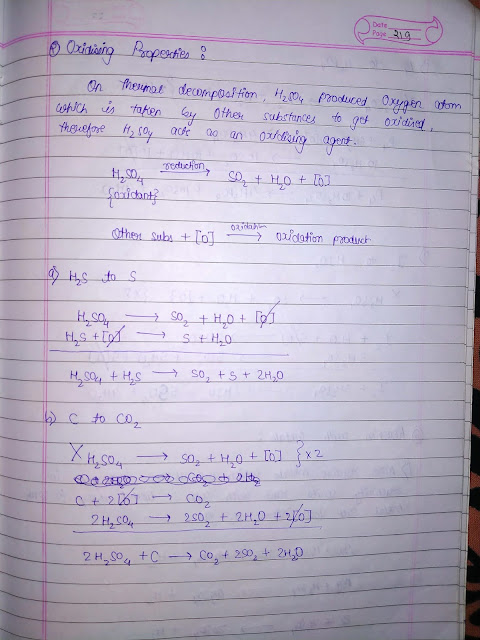 Date
Page 219
e) Oxidising Properties :
On thermal decomposition, H₂SO₄ produced Oxygen atom
which is taken by other substances to get oxidised,
therefore H₂SO₄ act as an oxidising agent.
H₂SO₄ —reduction→ SO₂ + H₂O + [O]
{oxidant}
Other subs + [O] —oxidation→ oxidation product
a) H₂S to S
H₂SO₄ → SO₂ + H₂O + [O]
H₂S + [O] → S + H₂O
H₂SO₄ + H₂S → SO₂ + S + 2H₂O
b) C to CO₂
X H₂SO₄ → SO₂ + H₂O + [O] } x2
C + 2[O] → CO₂
2H₂SO₄ → 2SO₂ + 2H₂O + 2[O]
2H₂SO₄ + C → CO₂ + 2SO₂ + 2H₂O